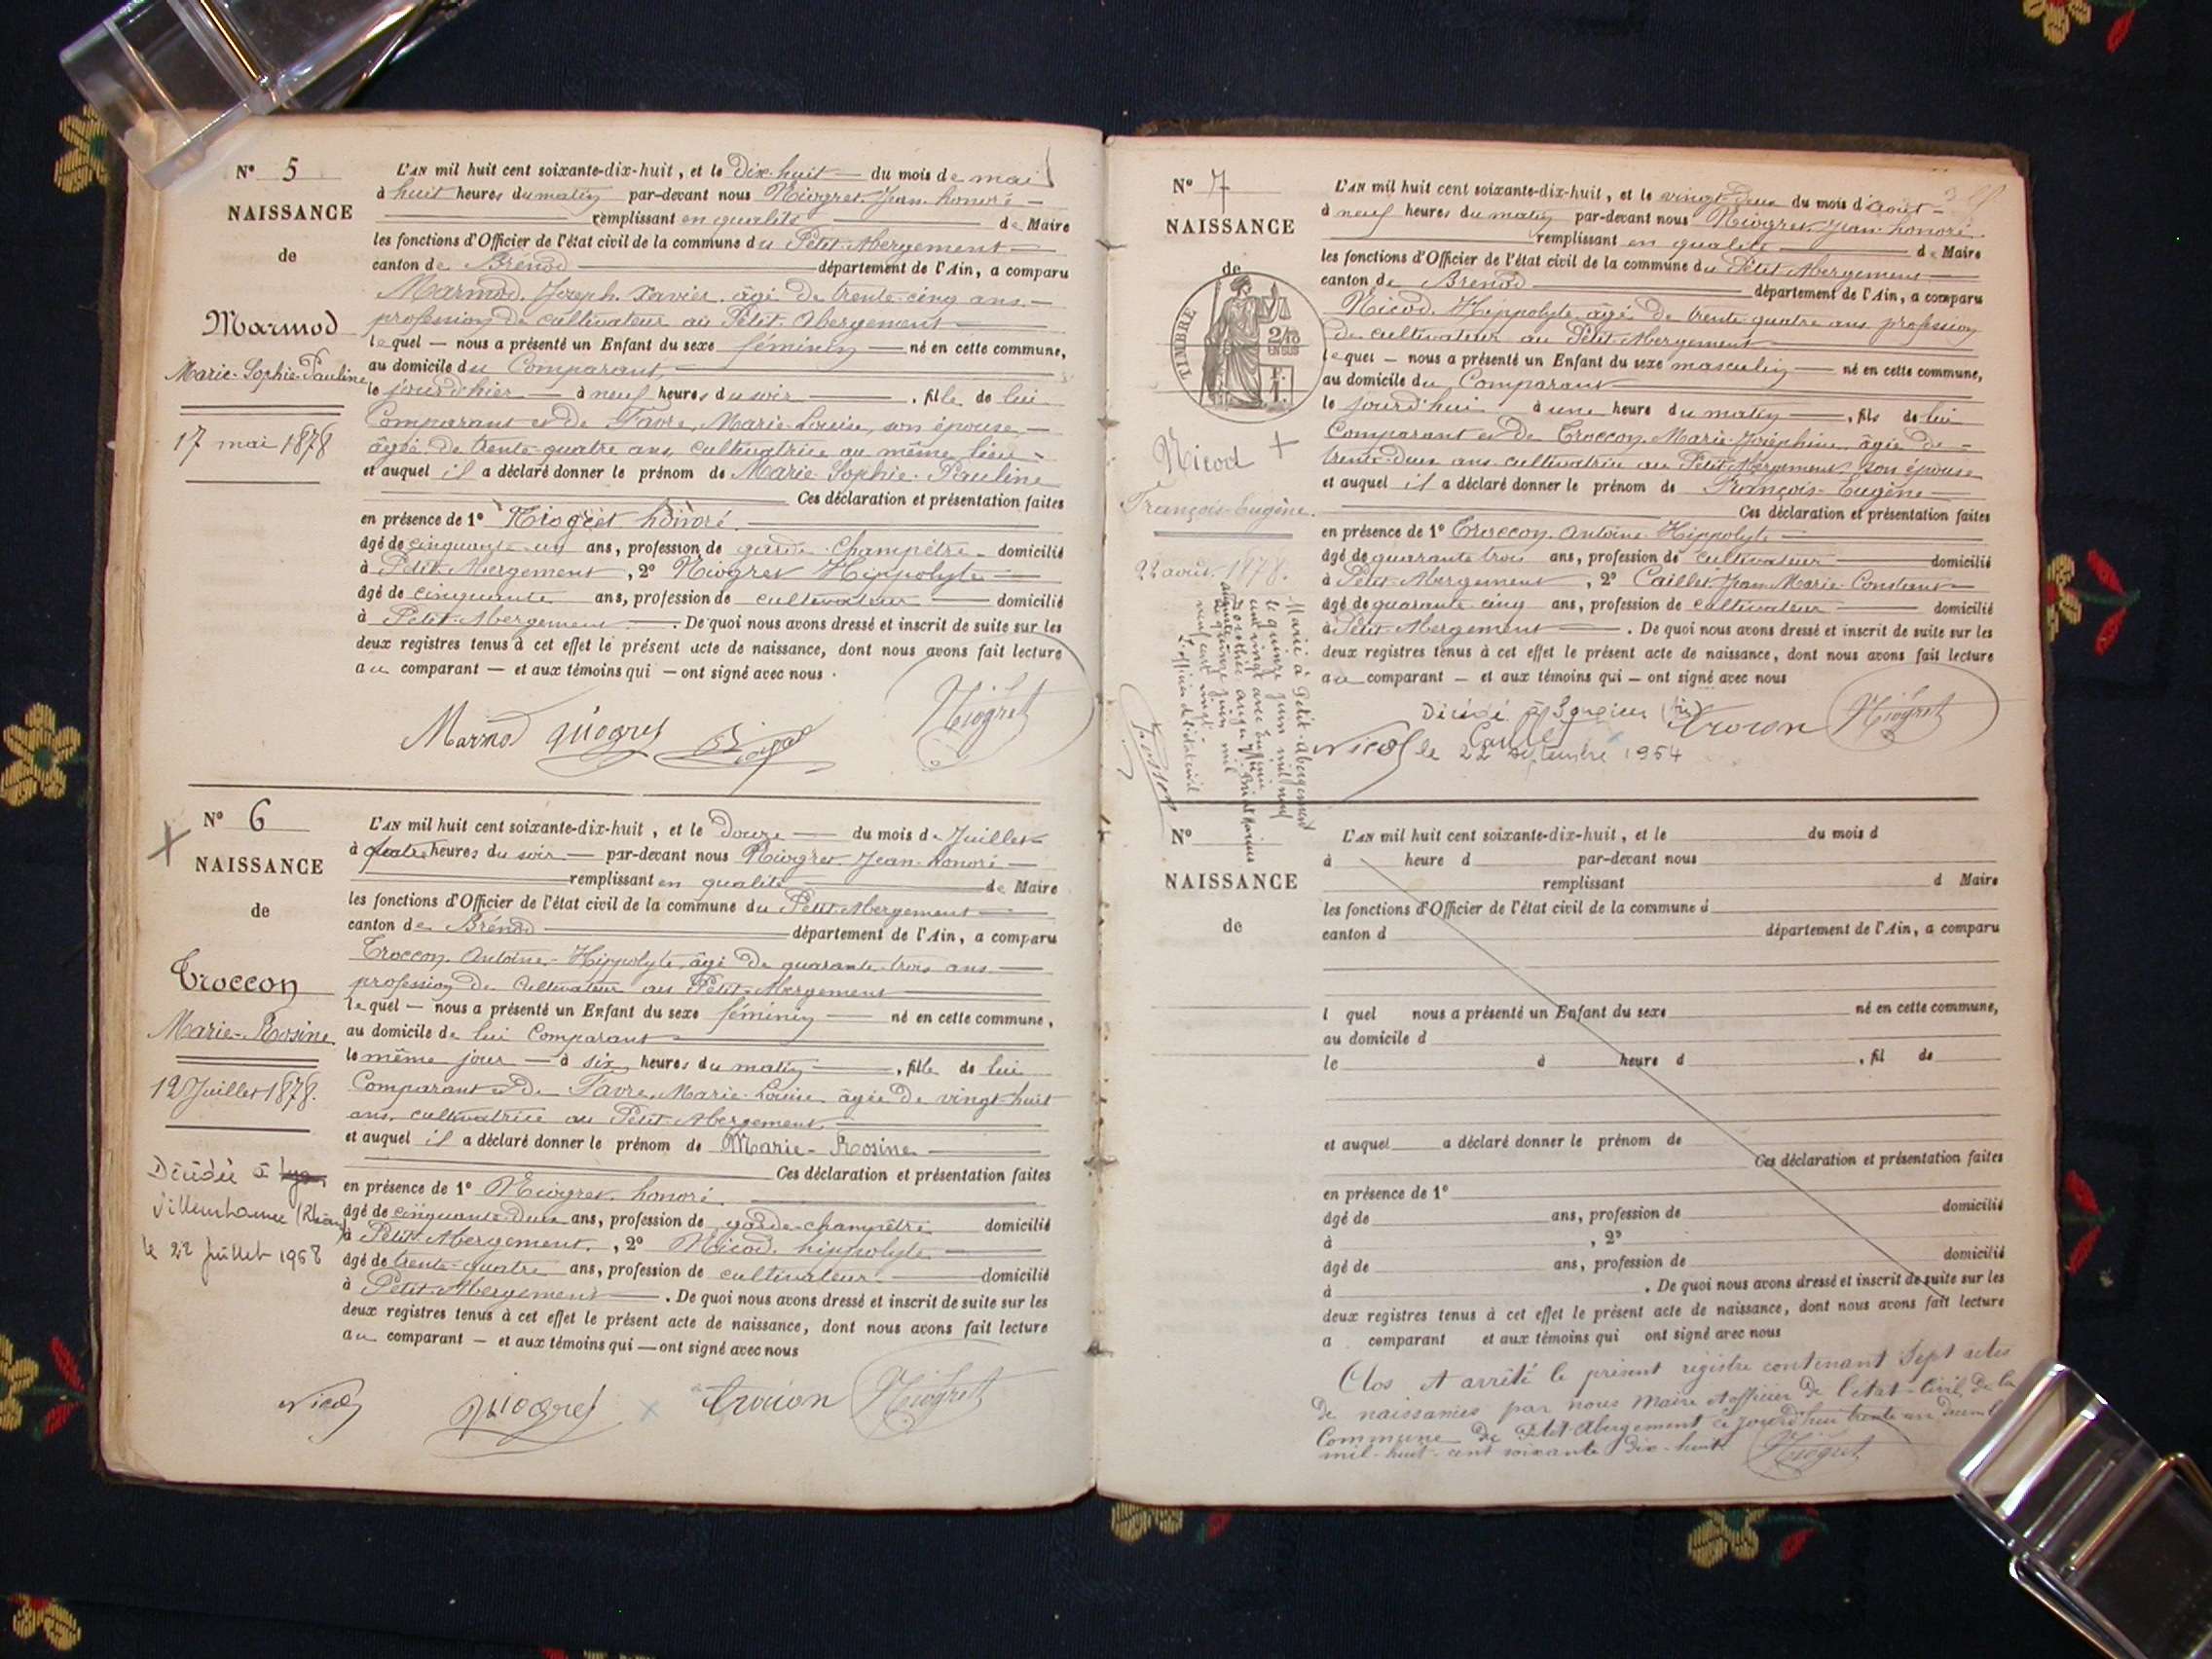 N° 5
NAISSANCE
de
Marmod
Marie-Sophie-Pauline
17 mai 1878
L'AN mil huit cent soixante-dix-huit, et le Dix-huit du mois de mai
à huit heures du matin par-devant nous Niogret Jean-honoré
remplissant en qualité de Maire
les fonctions d'Officier de l'état civil de la commune du Petit-Abergement
canton de Brénod département de l'Ain, a comparu
Marmod Joseph Xavier âgé de trente-cinq ans
profession de cultivateur au Petit-Abergement
lequel — nous a présenté un Enfant du sexe féminin né en cette commune,
au domicile du Comparant
le jour d'hier à neuf heures du soir, fille de lui
Comparant et de Favre, Marie-Louise, son épouse,
âgée de trente-quatre ans, cultivatrice au même lieu
et auquel il a déclaré donner le prénom de Marie-Sophie-Pauline
Ces déclaration et présentation faites
en présence de 1° Niogret honoré
âgé de cinquante-un ans, profession de garde-champêtre domicilié
à Petit-Abergement, 2° Niogret Hippolyte
âgé de cinquante ans, profession de cultivateur domicilié
à Petit-Abergement. De quoi nous avons dressé et inscrit de suite sur les
deux registres tenus à cet effet le présent acte de naissance, dont nous avons fait lecture
au comparant — et aux témoins qui — ont signé avec nous.
Marmod Niogret Niogret
N° 6
NAISSANCE
de
Troccon
Marie-Rosine
12 Juillet 1878.
Décédée à
Villeurbanne (Rhône)
le 22 Juillet 1968
L'AN mil huit cent soixante-dix-huit, et le douze du mois de Juillet
à quatre heures du soir par-devant nous Niogret Jean-honoré
remplissant en qualité de Maire
les fonctions d'Officier de l'état civil de la commune du Petit-Abergement
canton de Brénod département de l'Ain, a comparu
Troccon Antoine-Hippolyte, âgé de quarante-trois ans
profession de Cultivateur au Petit-Abergement
lequel — nous a présenté un Enfant du sexe féminin né en cette commune,
au domicile de lui Comparant
le même jour — à six heures du matin, fille de lui
Comparant et de Favre, Marie-Louise âgée de vingt-huit
ans, cultivatrice au Petit-Abergement,
et auquel il a déclaré donner le prénom de Marie-Rosine
Ces déclaration et présentation faites
en présence de 1° Niogret honoré
âgé de cinquante-deux ans, profession de garde-champêtre domicilié
à Petit-Abergement, 2° Nicod hippolyte
âgé de trente-quatre ans, profession de cultivateur domicilié
à Petit-Abergement. De quoi nous avons dressé et inscrit de suite sur les
deux registres tenus à cet effet le présent acte de naissance, dont nous avons fait lecture
au comparant — et aux témoins qui — ont signé avec nous
Nicod Niogret Trocon Niogret
N° 7
NAISSANCE
de
TIMBRE
2/10
EN SUS
Nicod
François-Eugène.
22 août 1878.
Marié à Petit-Abergement
le quinze juin mil neuf
cent vingt avec Eugénie
L'officier de l'état civil
L'AN mil huit cent soixante-dix-huit, et le vingt-deux du mois d'août
à neuf heures du matin par-devant nous Niogret Jean-honoré
remplissant en qualité de Maire
les fonctions d'Officier de l'état civil de la commune du Petit-Abergement
canton de Brénod département de l'Ain, a comparu
Nicod Hippolyte âgé de trente-quatre ans profession
de cultivateur au Petit-Abergement
lequel — nous a présenté un Enfant du sexe masculin né en cette commune,
au domicile du Comparant
le jourd'hui à une heure du matin, fils de lui
Comparant et de Troccon Marie-Joséphine âgée de
trente-deux ans cultivatrice au Petit-Abergement son épouse
et auquel il a déclaré donner le prénom de François-Eugène
Ces déclaration et présentation faites
en présence de 1° Troccon Antoine Hippolyte
âgé de quarante trois ans, profession de cultivateur domicilié
à Petit-Abergement, 2° Caillet Jean-Marie-Constant
âgé de quarante cinq ans, profession de cultivateur domicilié
à Petit-Abergement. De quoi nous avons dressé et inscrit de suite sur les
deux registres tenus à cet effet le présent acte de naissance, dont nous avons fait lecture
au comparant — et aux témoins qui — ont signé avec nous
Décédé à
Caillet Trocon Niogret
Nicod le 22 septembre 1954
N°
NAISSANCE
de
L'AN mil huit cent soixante-dix-huit, et le du mois d
à heure d par-devant nous
remplissant d Maire
les fonctions d'Officier de l'état civil de la commune d
canton d département de l'Ain, a comparu
l quel nous a présenté un Enfant du sexe né en cette commune,
au domicile d
le à heure d , fil de
et auquel a déclaré donner le prénom de
Ces déclaration et présentation faites
en présence de 1°
âgé de ans, profession de domicilié
à , 2°
âgé de ans, profession de domicilié
à . De quoi nous avons dressé et inscrit de suite sur les
deux registres tenus à cet effet le présent acte de naissance, dont nous avons fait lecture
a comparant et aux témoins qui ont signé avec nous
Clos et arrêté le présent registre contenant Sept actes
de naissances par nous Maire et officier de l'état-Civil de la
Commune de Petit-Abergement ce jourd'hui trente un
mil-huit-cent soixante dix-huit Niogret